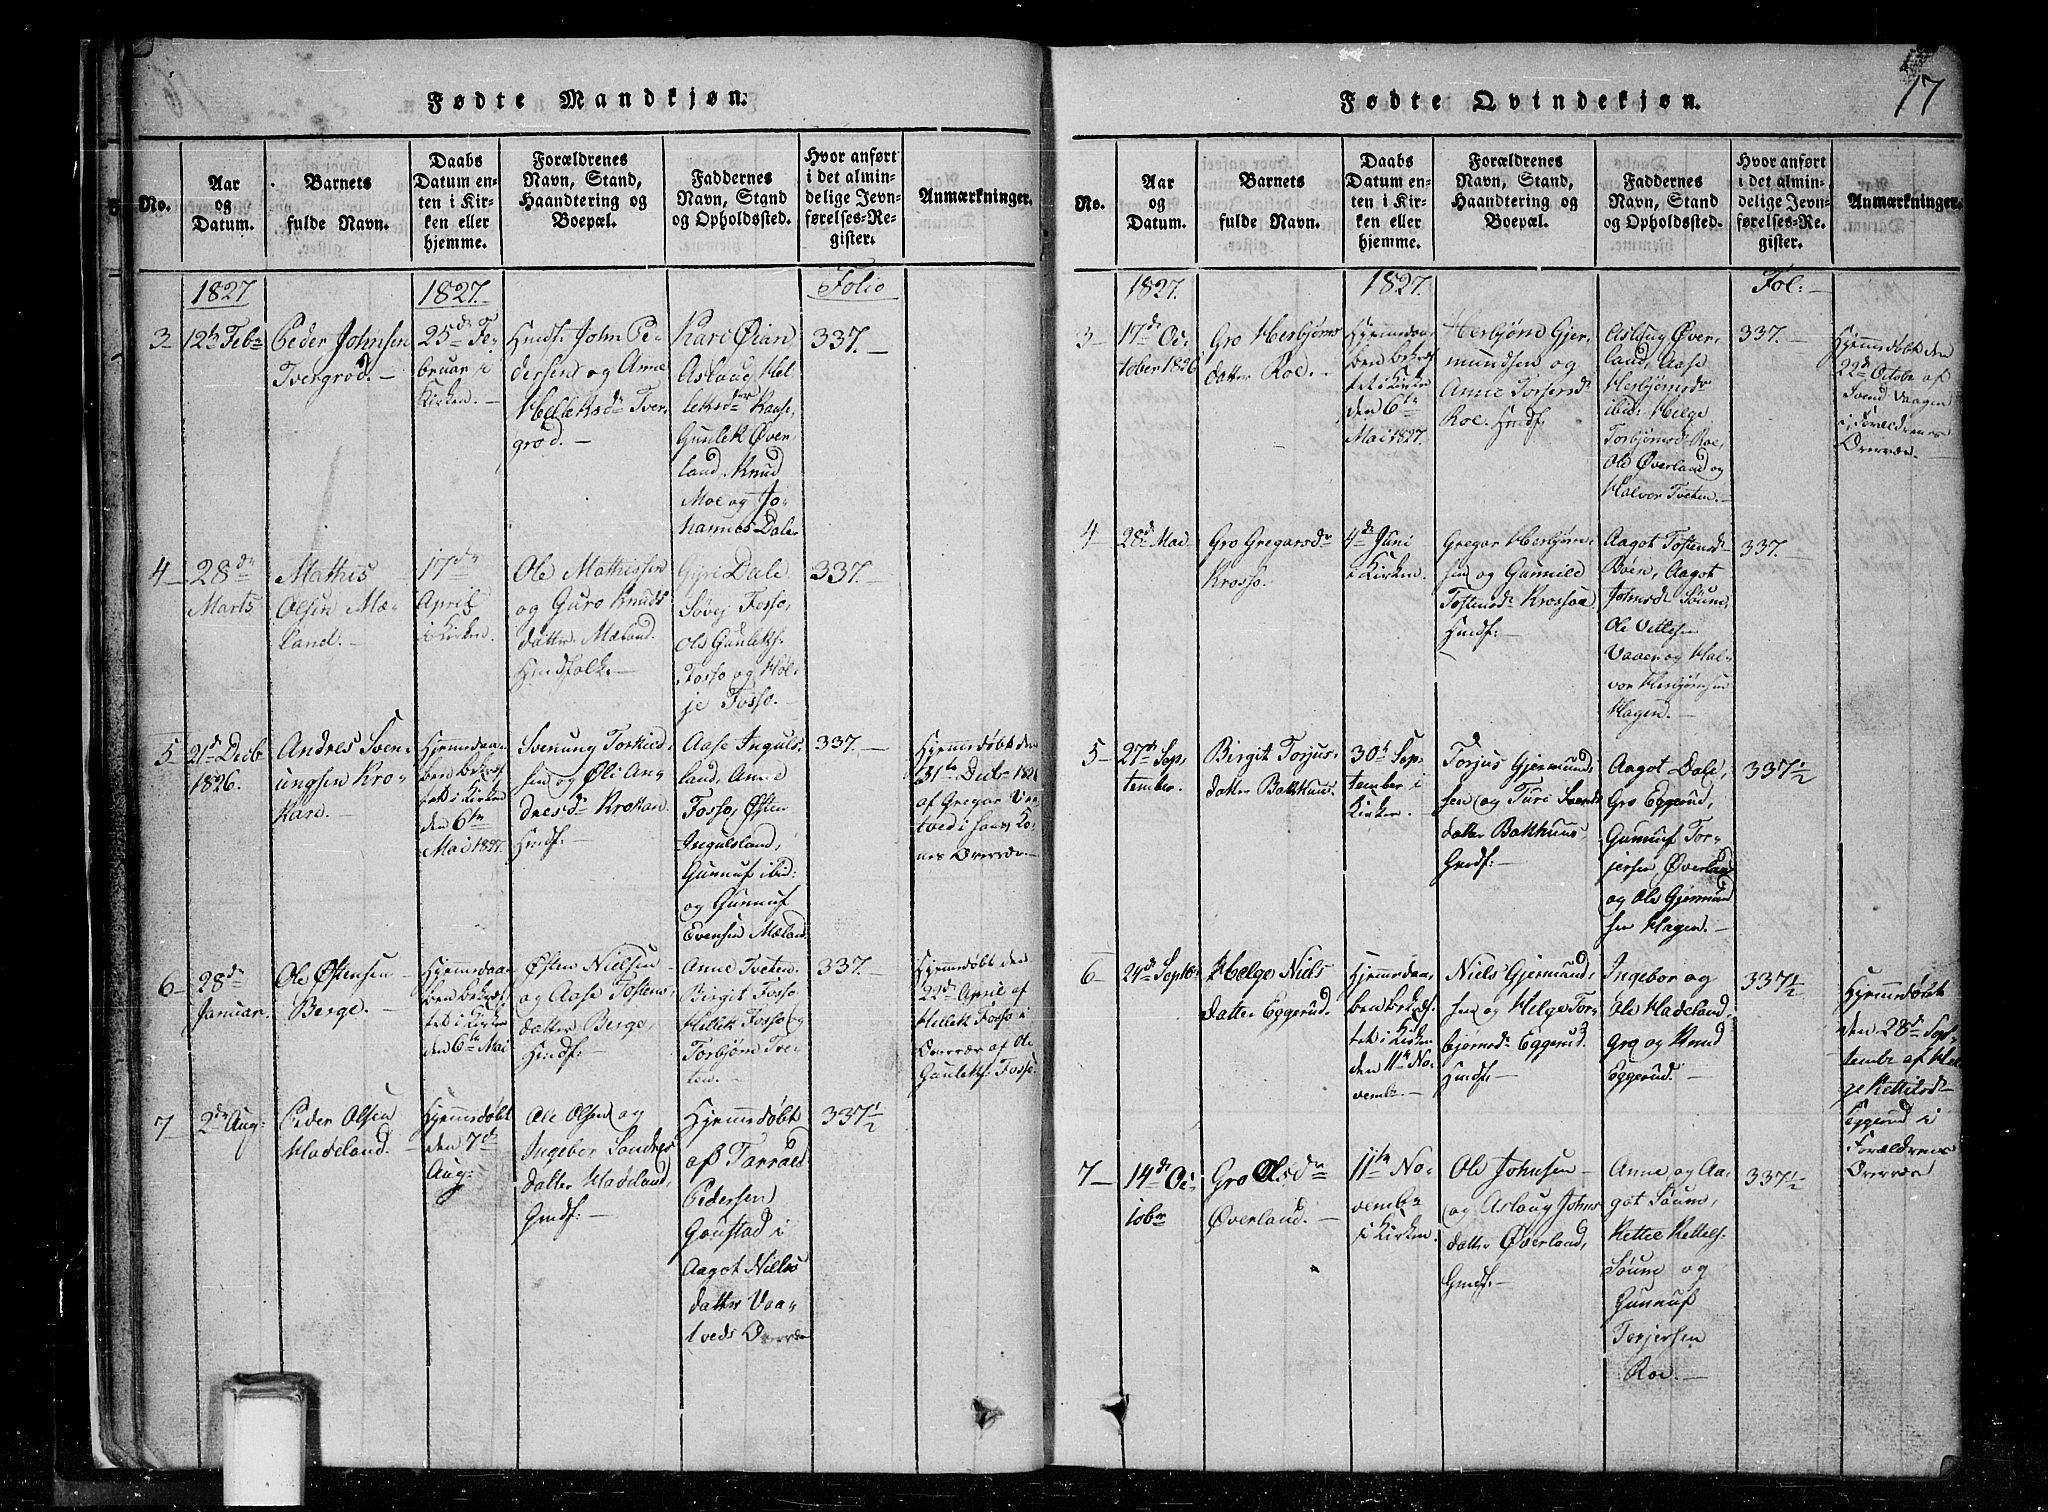 Fødte Mandkjøn.
No.
Aar
og
Datum.
Barnets
fulde Navn.
Daabs
Datum en-
ten i Kir-
ken eller
hjemme.
Forældrenes
Navn, Stand,
Haandtering og
Boepæl.
Faddernes
Navn, Stand
og Opholdssted.
Hvor anført
i det almin-
delige Jevn-
førelses-Re-
gister.
Anmærkninger.
1827
1827.
Folio
3
12te Febr
Peder Johnsen
Tvergrod.
25de Fe-
bruar i
Kirken.
Huusf. John Pe-
dersen og Anne
Helleksdr Tver-
grod.
Kari Øian
Aslaug Hel-
leksdr Kaase
Gunlek Øver-
land, Knud
Moe og Jo-
hannes Dale
337.
4
28de
Marts
Mathis
Olsen Mæ-
land.
17de
April
i Kirken.
Ole Mathissen
og Guro Knuds
datter Mæland.
Huusfolk.
Gyri Dale
Søvej Fosso,
Ole Gunleks.
Fosso og Høl-
je Fosso.
337.
5
21de Decb
1826.
Andres Sven-
ungsen Kro-
kan.
Hjemmedaa-
ben bekræf-
tet i Kirken
den 6te
Mai 1827.
Svenung Torkild-
sen og Øli An-
dresdr Krokan
Huusf:
Aase Inguls-
land, Anne
Fosso, Østen
Ingulsland,
Gunnuf ibid:
og Gunnuf
Evensen Mæland
337.
Hjemmedøbt den
31te Decbr 1826
af Gregar Vaa-
tved i hans Ko-
nes Overvær.
6
28de
Januar.
Ole Østensen
Berge.
Hjemmedaa-
ben bekræf-
tet i Kirken
den 6te Mai
Østen Nielsen
og Aase Tostens-
datter Berge,
Huusf:
Anne Tveten
Birgit Fosso
Hellek Fosso og
Torbjørn Tve-
ten.
337.
Hjemmedøbt den
22de April af
Hellek Fosso i
Overvær af Ole
Gunleks: Fosso.
7
2de Aug:
Peder Olsen
Hadeland.
Hjemmedøbt
den 7de
Aug:
Ole Olsen og
Ingebor Sondres
datter Hadeland,
Huusf:
Hjemmedøbt
af Tarrald
Pedersen
Gaustad i
Aagot Niels
datter Vaa-
tveds Overvær
337½
17
Fødte Qvindekjøn.
No.
Aar
og
Datum.
Barnets
fulde Navn.
Daabs
Datum en-
ten i Kir-
ken eller
hjemme.
Forældrenes
Navn, Stand,
Haandtering og
Boepæl.
Faddernes
Navn, Stand
og Opholdssted.
Hvor anført
i det almin-
delige Jevn-
førelses-Re-
gister.
Anmærkninger.
1827.
1827.
Fol:
3
17de Oc-
tober 1826
Gro Herbjørns
datter Roe.
Hjemmedaa-
ben bekræf-
tet i Kirken
den 6te
Mai 1827.
Herbjørn Gjer-
mundsen og
Anne Torsensd
Roe. Huusf.
Aslaug Øver-
land, Aase
Herbjørnsd
ibid: Helge
Torbjørnsd Roe,
Ole Øverland og
Halvor Tveten.
337.
Hjemmedøbt den
22de October af
Svend Vaagen
i Forældrenes
Overvær.
4
28de Mai.
Gro Gregarsdr
Krosso.
4de Juni
i Kirken.
Gregar Herbjørn-
sen og Gunnild
Tostensdr Krossoe
Huusf:
Aagot Tostensd
Bøen, Aagot
Johnsd Søum,
Ole Vetlesen
Vaaer og Hal-
vor Herbjørnsen
Hagen.
337.
5
27de Sep-
tember.
Birgit Torjus-
datter Bakhuus.
30te Sep-
tember i
Kirken.
Torjus Gjermund-
sen og Turi Svends
datter Bakhuus,
Huusf:
Aagot Dale,
Gro Eggerud,
Gunnuf Tor-
jersen Øverland
og Ole Gjermund
sen Hagen.
337½
6
24de Septbr
Helge Niels
datter Eggerud.
Hjemmedaa-
ben bekræf-
tet i Kirken
den 11te No-
vembr.
Niels Gjermund-
sen og Helge Tor-
bjørnsdr Eggerud.
Huusf:
Ingebor og
Ole Hadeland,
Gro og Knud
Eggerud.
337½
Hjemmedøbt
den 28de Sep-
tember af Hel-
je Kettilsdr
Eggerud i
Forældrenes
Overvær
7
14de Oc-
tober
Gro Olsdr
Øverland.
11te No-
vembr
i Kirken.
Ole Johnsen
og Aslaug Johns
datter Øverland,
Huusf:
Anne og Aa-
got Søum,
Kettil Kettels.
Søum og
Gunnuf
Torjersen
Roe.
337½